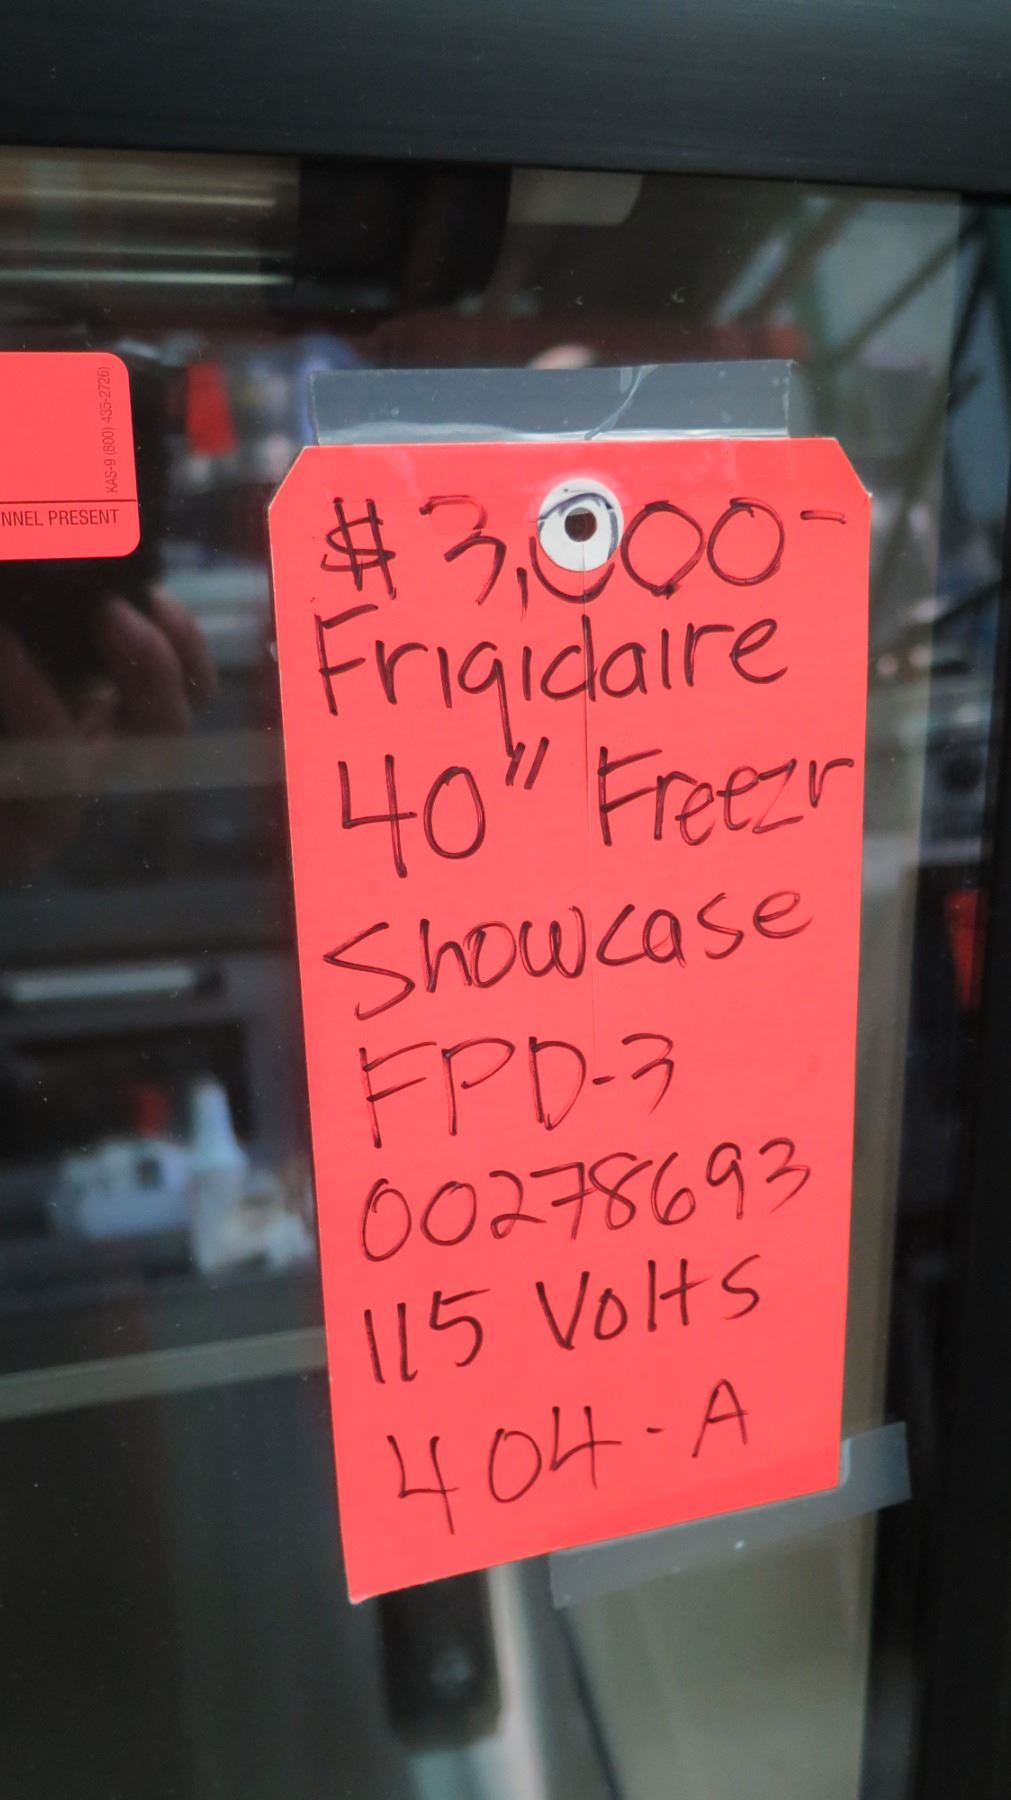 KAS-9 (800) 435-2726)
NNEL PRESENT
$3,000-
Frigidaire
40" Freezr
Showcase
FPD-3
00278693
115 Volts
404-A